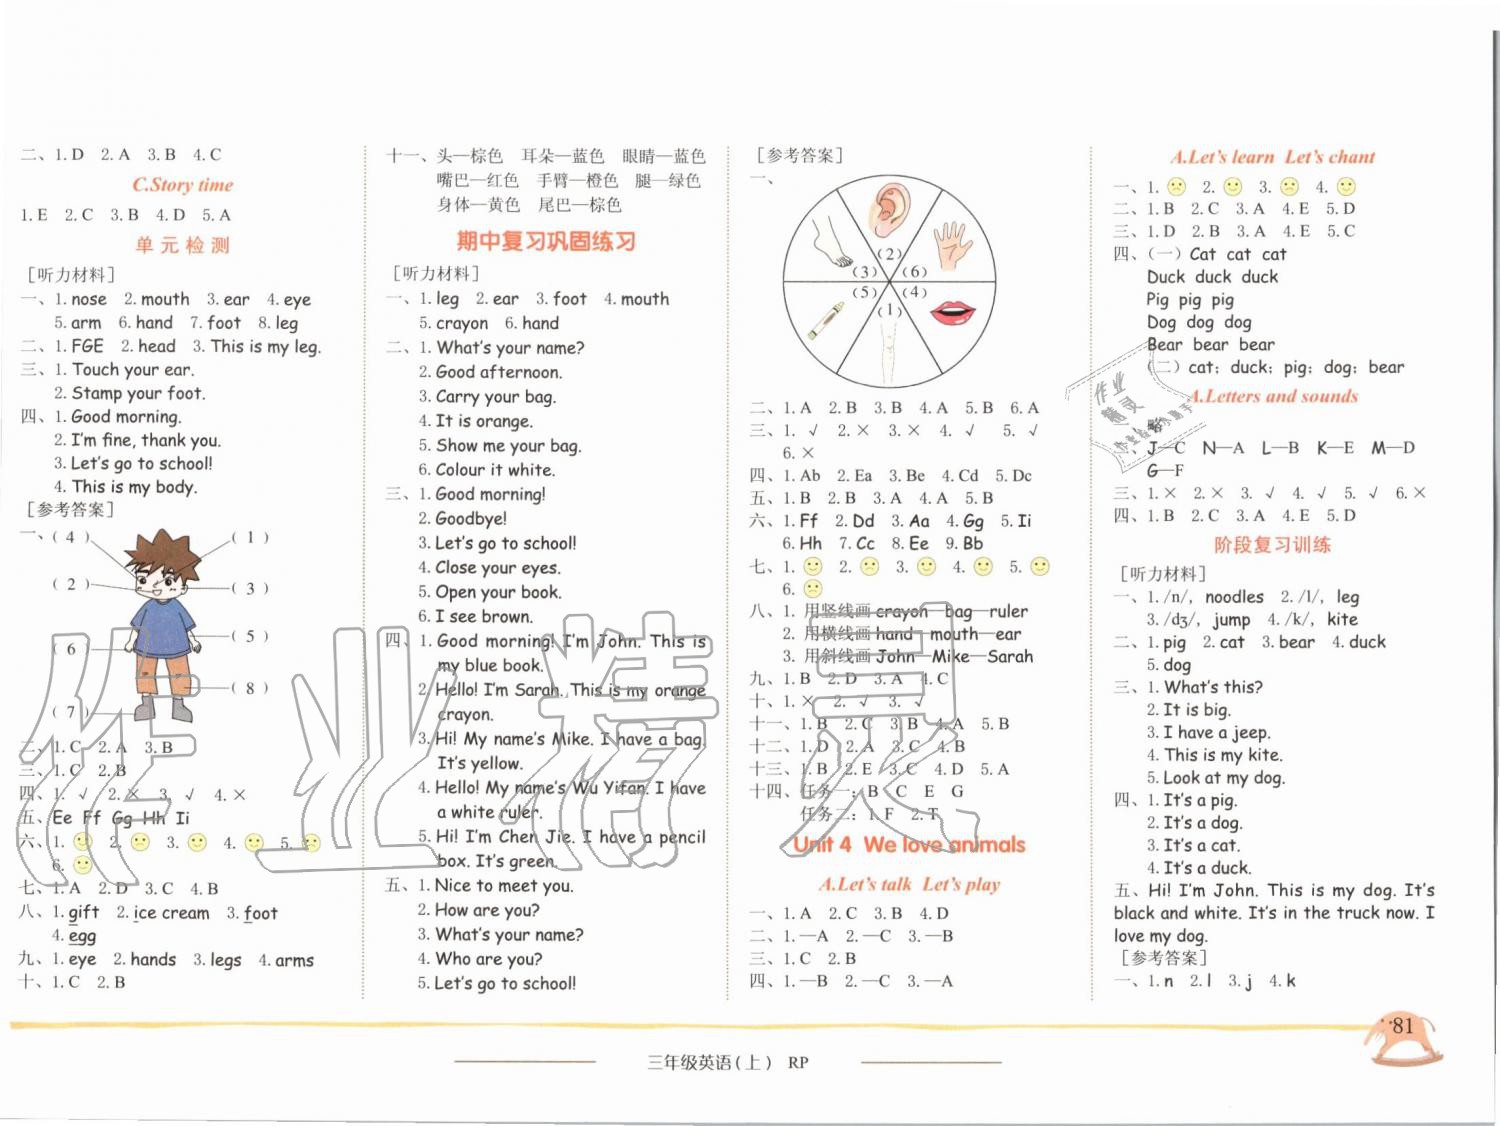 二、1.D 2.A 3.B 4.C
C.Story time
1.E 2.C 3.B 4.D 5.A
单元检测
[听力材料]
一、1.nose 2.mouth 3.ear 4.eye
5.arm 6.hand 7.foot 8.leg
二、1.FGE 2.head 3.This is my leg.
三、1.Touch your ear.
2.Stamp your foot.
四、1.Good morning.
2.I'm fine, thank you.
3.Let's go to school!
4.This is my body.
[参考答案]
一、(4) (1)
(2) (3)
(5)
(6)
(8)
(7)
二、1.C 2.A 3.B
三、1.C 2.B
四、1.√ 2.× 3.√ 4.×
五、Ee Ff Gg Hh Ii
六、1. 2. 3. 4. 5.
6.
七、1.A 2.D 3.C 4.B
八、1.gift 2.ice cream 3.foot
4.egg
九、1.eye 2.hands 3.legs 4.arms
十、1.C 2.B
十一、头—棕色 耳朵—蓝色 眼睛—蓝色
嘴巴—红色 手臂—橙色 腿—绿色
身体—黄色 尾巴—棕色
期中复习巩固练习
[听力材料]
一、1.leg 2.ear 3.foot 4.mouth
5.crayon 6.hand
二、1.What's your name?
2.Good afternoon.
3.Carry your bag.
4.It is orange.
5.Show me your bag.
6.Colour it white.
三、1.Good morning!
2.Goodbye!
3.Let's go to school!
4.Close your eyes.
5.Open your book.
6.I see brown.
四、1.Good morning! I'm John. This is
my blue book.
2.Hello! I'm Sarah. This is my orange
crayon.
3.Hi! My name's Mike. I have a bag.
It's yellow.
4.Hello! My name's Wu Yifan. I have
a white ruler.
5.Hi! I'm Chen Jie. I have a pencil
box. It's green.
五、1.Nice to meet you.
2.How are you?
3.What's your name?
4.Who are you?
5.Let's go to school!
[参考答案]
一、
(2)
(3) (6)
(5) (4)
(1)
二、1.A 2.B 3.B 4.A 5.B 6.A
三、1.√ 2.× 3.× 4.√ 5.√
6.×
四、1.Ab 2.Ea 3.Be 4.Cd 5.Dc
五、1.B 2.B 3.A 4.A 5.B
六、1.Ff 2.Dd 3.Aa 4.Gg 5.Ii
6.Hh 7.Cc 8.Ee 9.Bb
七、1. 2. 3. 4. 5.
6.
八、1.用竖线画 crayon—bag—ruler
2.用横线画 hand—mouth—ear
3.用斜线画 John—Mike—Sarah
九、1.B 2.D 3.A 4.C
十、1.× 2.√ 3.√
十一、1.B 2.C 3.B 4.A 5.B
十二、1.D 2.A 3.C 4.B
十三、1.B 2.E 3.C 4.D 5.A
十四、任务一:B C E G
任务二:1.F 2.T
Unit 4 We love animals
A.Let's talk Let's play
一、1.A 2.C 3.B 4.D
二、1.—A 2.—C 3.—B
三、1.C 2.B
四、1.—B 2.—C 3.—A
A.Let's learn Let's chant
一、1. 2. 3. 4.
二、1.B 2.C 3.A 4.E 5.D
三、1.D 2.B 3.A 4.E 5.C
四、(一)Cat cat cat
Duck duck duck
Pig pig pig
Dog dog dog
Bear bear bear
(二)cat; duck; pig; dog; bear
A.Letters and sounds
略
J—C N—A L—B K—E M—D
G—F
三、1.× 2.× 3.√ 4.√ 5.√ 6.×
四、1.B 2.C 3.A 4.E 5.D
阶段复习训练
[听力材料]
一、1./n/, noodles 2./l/, leg
3./dʒ/, jump 4./k/, kite
二、1.pig 2.cat 3.bear 4.duck
5.dog
三、1.What's this?
2.It is big.
3.I have a jeep.
4.This is my kite.
5.Look at my dog.
四、1.It's a pig.
2.It's a dog.
3.It's a cat.
4.It's a duck.
五、Hi! I'm John. This is my dog. It's
black and white. It's in the truck now. I
love my dog.
[参考答案]
一、1.n 2.l 3.j 4.k
81
三年级英语(上) RP
作业精灵
作业
精灵